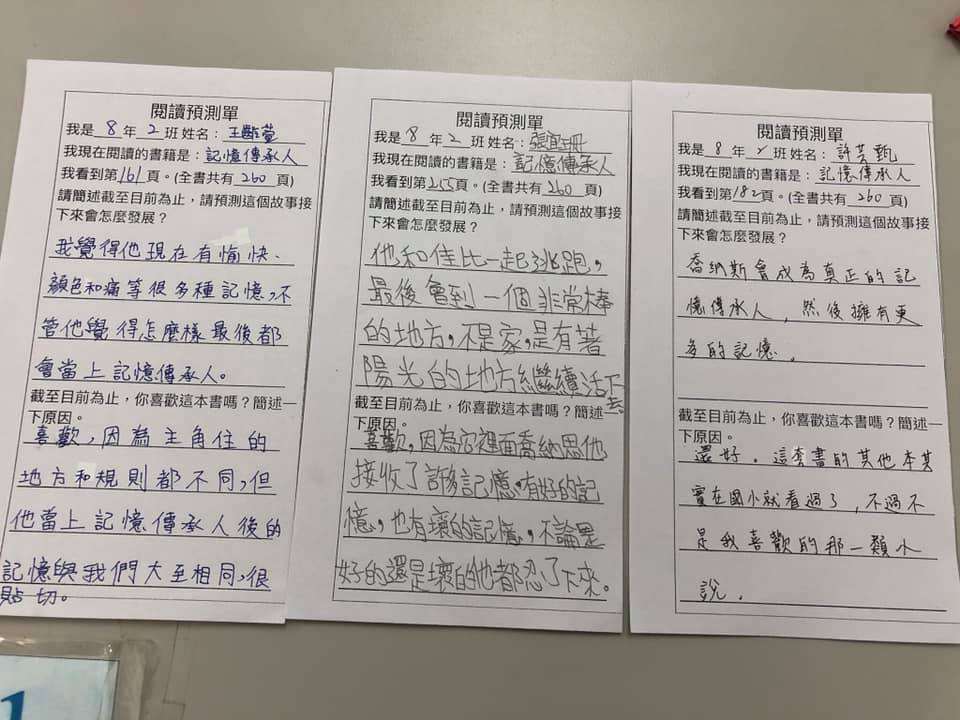 閱讀預測單
我是 8 年 2 班姓名：王
我現在閱讀的書籍是：記憶傳承人
我看到第161頁。(全書共有 260 頁)
請簡述截至目前為止，請預測這個故事接
下來會怎麼發展？
我覺得他現在有愉快、
顏色和痛等很多種記憶，不
管他覺得怎麼樣最後都
會當上記憶傳承人。
截至目前為止，你喜歡這本書嗎？簡述一
下原因。
喜歡，因為主角住的
地方和規則都不同，但
他當上記憶傳承人後的
記憶與我們大至相同，很
貼切。
閱讀預測單
我是 8 年 2 班姓名：張
我現在閱讀的書籍是：記憶傳承人
我看到第255頁。(全書共有 260 頁)
請簡述截至目前為止，請預測這個故事接
下來會怎麼發展？
他和佳比一起逃跑，
最後會到一個非常棒
的地方，不是家，是有著
陽光的地方繼續活下去
截至目前為止，你喜歡這本書嗎？簡述一
下原因。
喜歡，因為它裡面喬納思他
接收了許多記憶，有好的記
憶，也有壞的記憶，不論是
好的還是壞的他都忍了下來。
閱讀預測單
我是 8 年 2 班姓名：許芸甄
我現在閱讀的書籍是：記憶傳承人
我看到第182頁。(全書共有 260 頁)
請簡述截至目前為止，請預測這個故事接
下來會怎麼發展？
喬納斯會成為真正的記
憶傳承人，然後擁有更
多的記憶．
截至目前為止，你喜歡這本書嗎？簡述一
下原因。
還好．這套書的其他本其
實在國小就看過了，不過不
是我喜歡的那一類小
說．